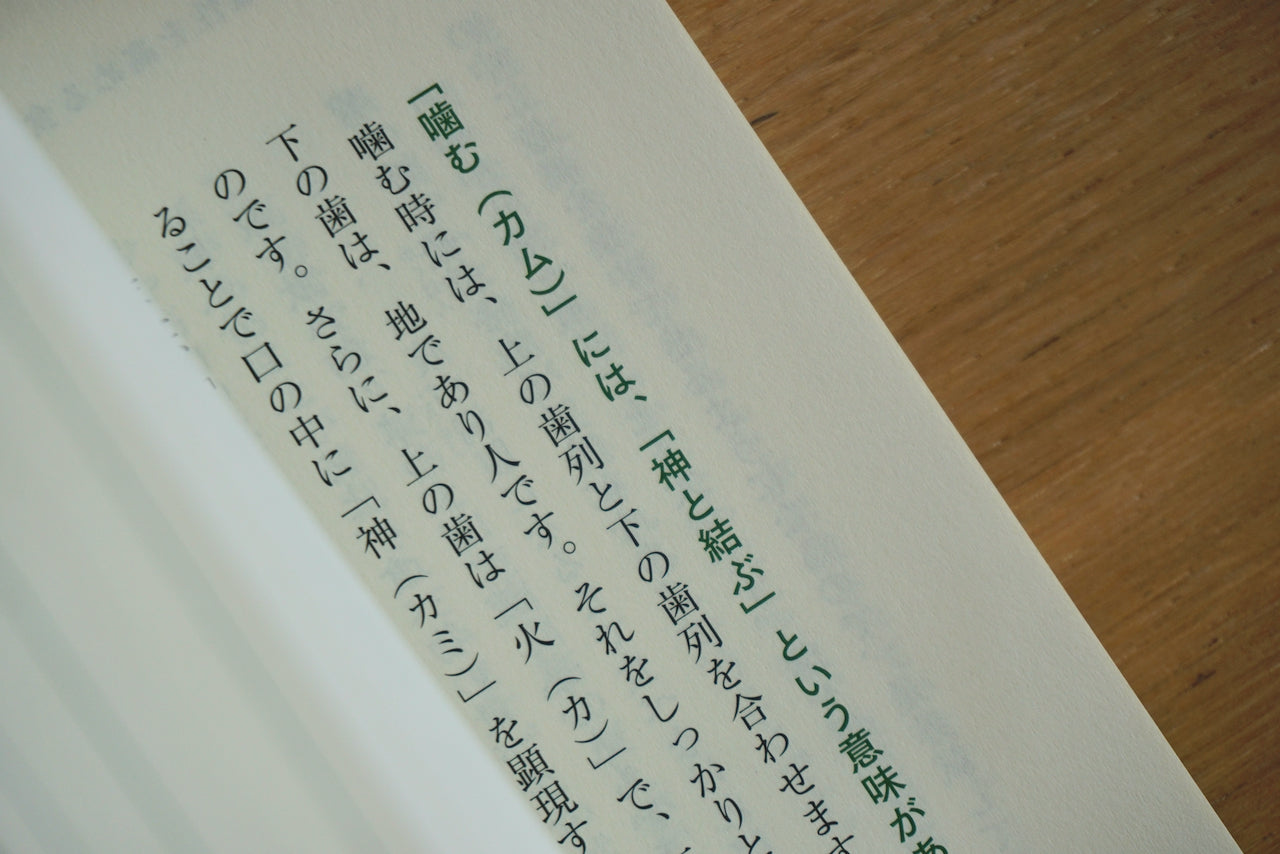 「噛む（カム）」には、「神と結ぶ」という意味があ
噛む時には、上の歯列と下の歯列を合わせます
下の歯は、地であり人です。それをしっかりと
のです。さらに、上の歯は「火（カ）」で、
ることで口の中に「神（カミ）」を顕現す